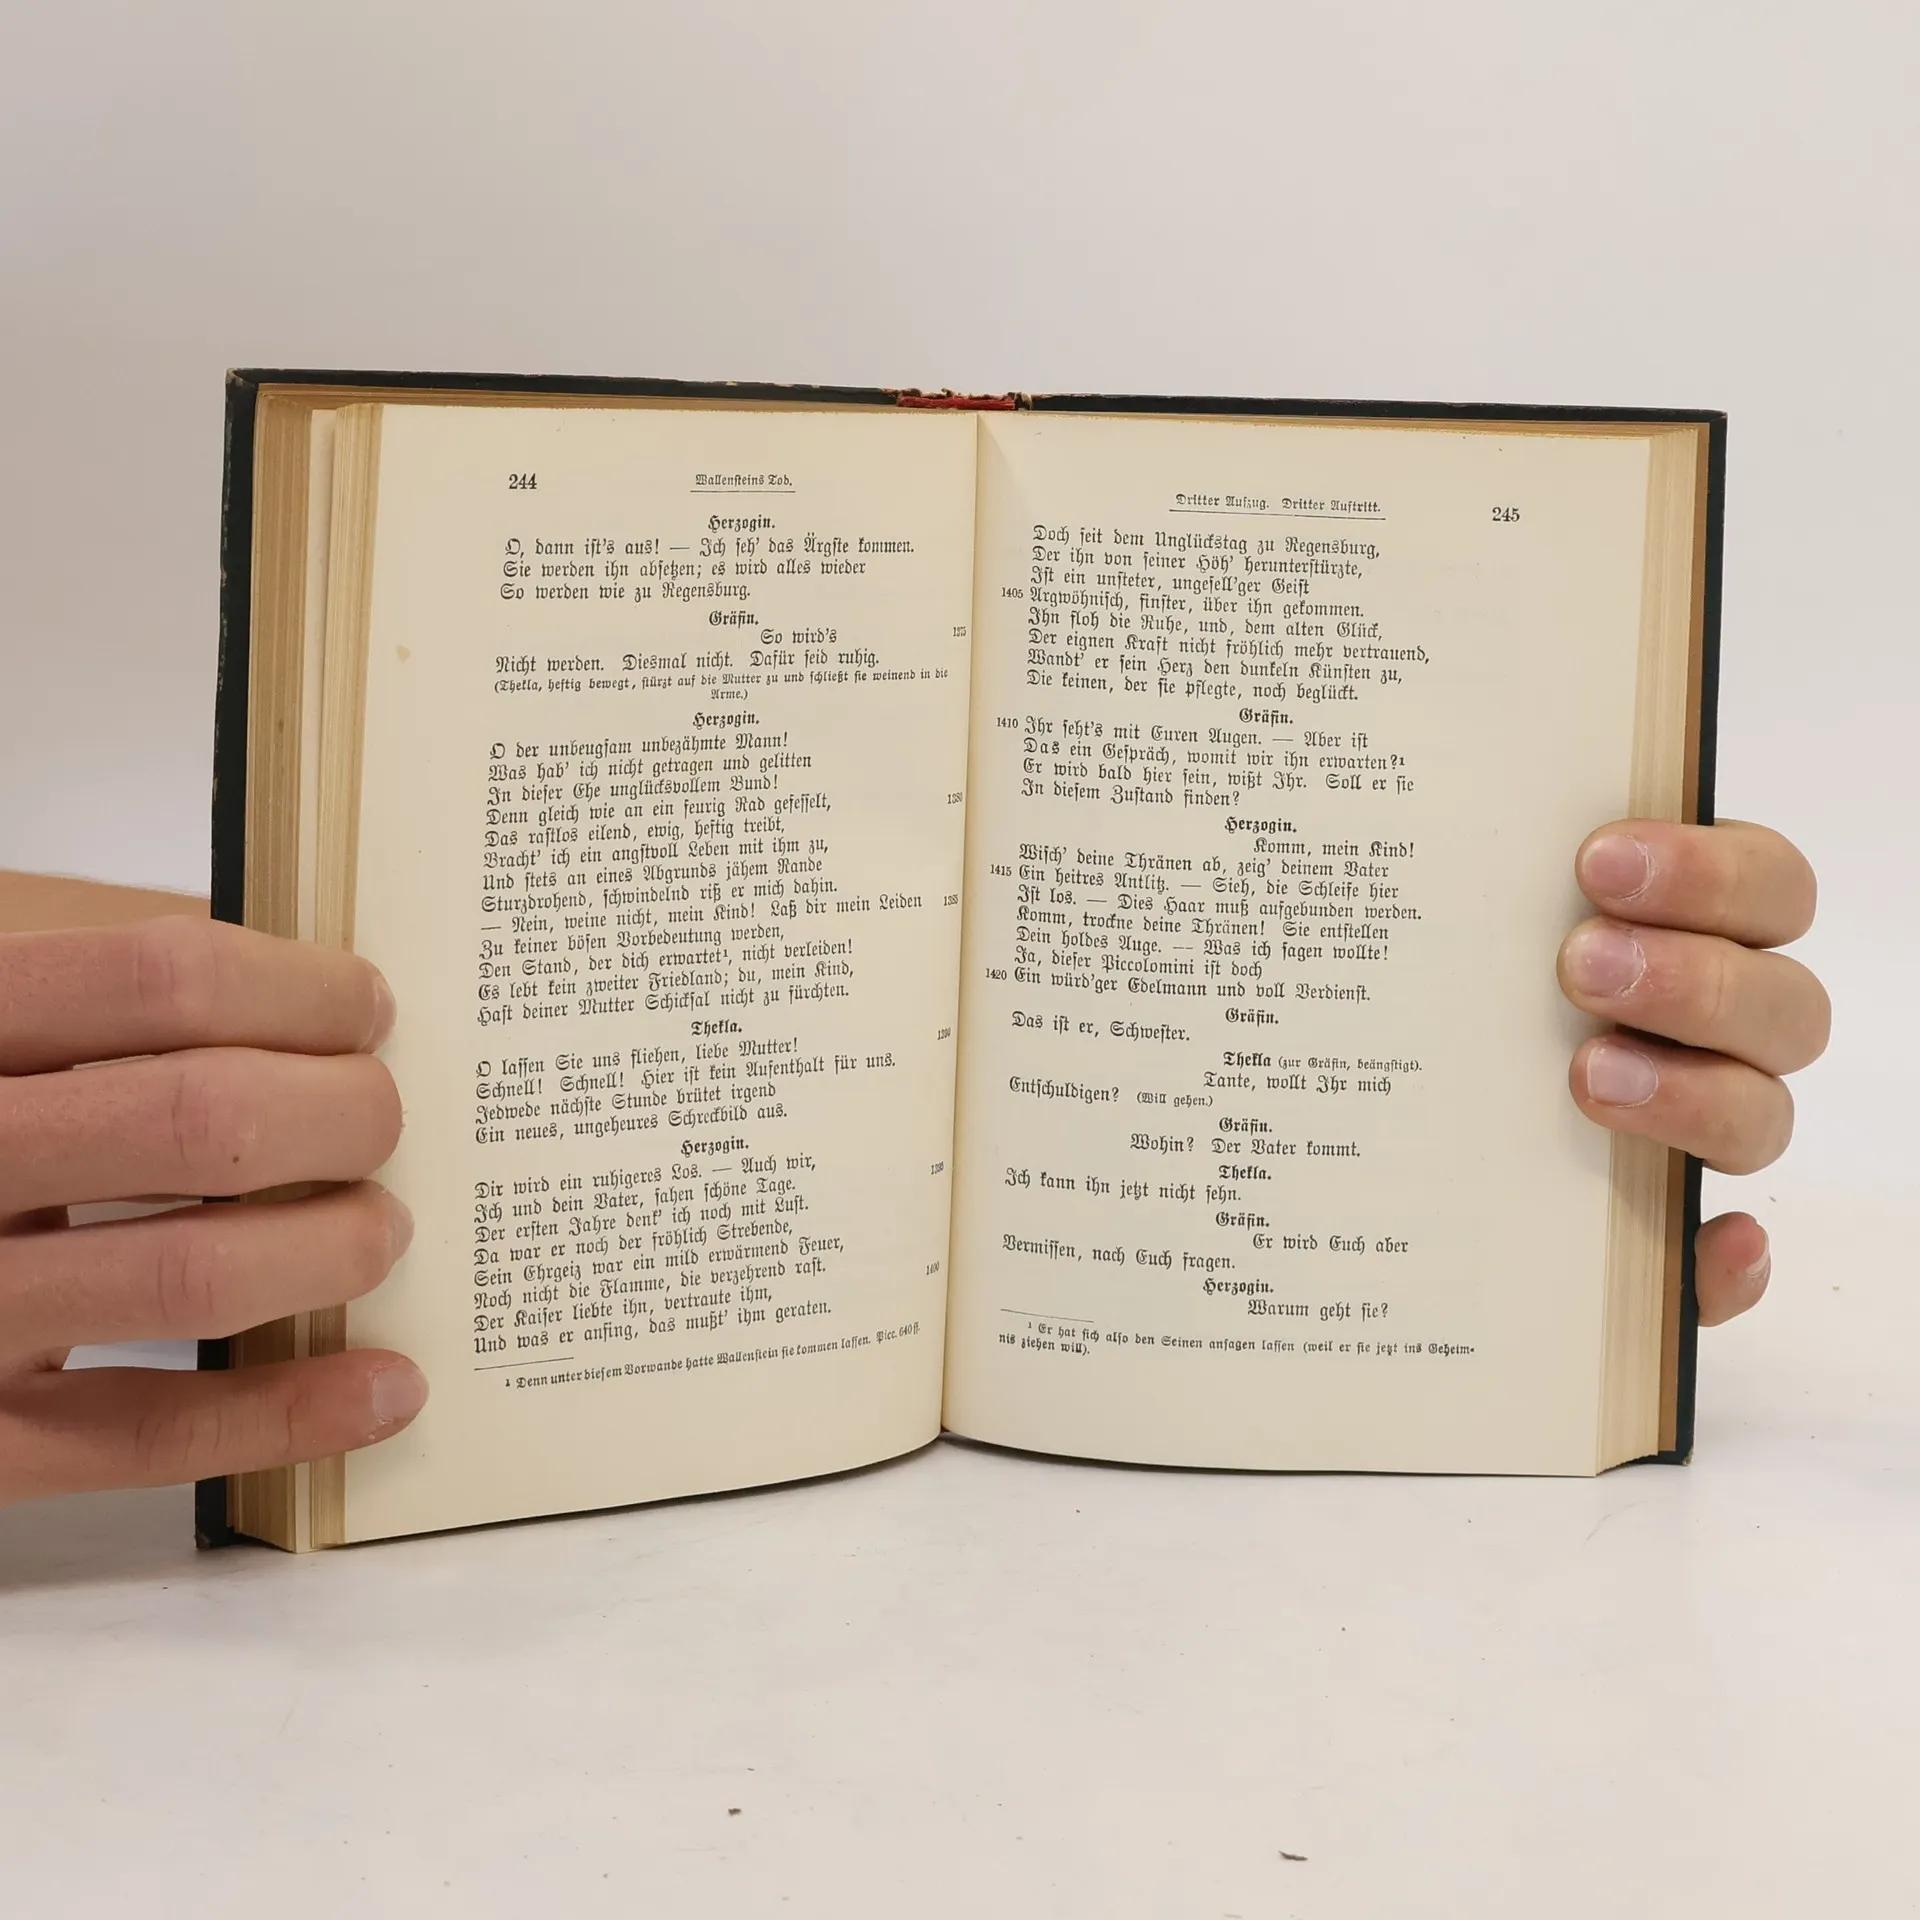 244
Wallensteins Tod.
Herzogin.
O, dann ist's aus! — Ich seh' das Ärgste kommen.
Sie werden ihn absetzen; es wird alles wieder
So werden wie zu Regensburg.
Gräfin.
So wird's 1375
Nicht werden. Diesmal nicht. Dafür seid ruhig.
(Thekla, heftig bewegt, stürzt auf die Mutter zu und schließt sie weinend in die
Arme.)
Herzogin.
O der unbeugsam unbezähmte Mann!
Was hab' ich nicht getragen und gelitten
In dieser Ehe unglücksvollem Bund!
Denn gleich wie an ein feurig Rad gefesselt, 1380
Das rastlos eilend, ewig, heftig treibt,
Bracht' ich ein angstvoll Leben mit ihm zu,
Und stets an eines Abgrunds jähem Rande
Sturzdrohend, schwindelnd riß er mich dahin.
— Nein, weine nicht, mein Kind! Laß dir mein Leiden 1385
Zu keiner bösen Vorbedeutung werden,
Den Stand, der dich erwartet¹, nicht verleiden!
Es lebt kein zweiter Friedland; du, mein Kind,
Hast deiner Mutter Schicksal nicht zu fürchten.
Thekla.
O lassen Sie uns fliehen, liebe Mutter! 1390
Schnell! Schnell! Hier ist kein Aufenthalt für uns.
Jedwede nächste Stunde brütet irgend
Ein neues, ungeheures Schreckbild aus.
Herzogin.
Dir wird ein ruhigeres Los. — Auch wir,
Ich und dein Vater, sahen schöne Tage. 1395
Der ersten Jahre denk' ich noch mit Lust.
Da war er noch der fröhlich Strebende,
Sein Ehrgeiz war ein mild erwärmend Feuer,
Noch nicht die Flamme, die verzehrend rast.
Der Kaiser liebte ihn, vertraute ihm, 1400
Und was er anfing, das mußt' ihm geraten.
¹ Denn unter diesem Vorwande hatte Wallenstein sie kommen lassen. Picc. 640 ff.
Dritter Aufzug. Dritter Auftritt.
245
Doch seit dem Unglückstag zu Regensburg,
Der ihn von seiner Höh' herunterstürzte,
Ist ein unsteter, ungesell'ger Geist
1405 Argwöhnisch, finster, über ihn gekommen.
Ihn floh die Ruhe, und, dem alten Glück,
Der eignen Kraft nicht fröhlich mehr vertrauend,
Wandt' er sein Herz den dunkeln Künsten zu,
Die keinen, der sie pflegte, noch beglückt.
Gräfin.
1410 Ihr seht's mit Euren Augen. — Aber ist
Das ein Gespräch, womit wir ihn erwarten?¹
Er wird bald hier sein, wißt Ihr. Soll er sie
In diesem Zustand finden?
Herzogin.
Komm, mein Kind!
Wisch' deine Thränen ab, zeig' deinem Vater
1415 Ein heitres Antlitz. — Sieh, die Schleife hier
Ist los. — Dies Haar muß aufgebunden werden.
Komm, trockne deine Thränen! Sie entstellen
Dein holdes Auge. — Was ich sagen wollte!
Ja, dieser Piccolomini ist doch
1420 Ein würd'ger Edelmann und voll Verdienst.
Gräfin.
Das ist er, Schwester.
Thekla (zur Gräfin, beängstigt).
Tante, wollt Ihr mich
Entschuldigen? (Will gehen.)
Gräfin.
Wohin? Der Vater kommt.
Thekla.
Ich kann ihn jetzt nicht sehn.
Gräfin.
Er wird Euch aber
Vermissen, nach Euch fragen.
Herzogin.
Warum geht sie?
¹ Er hat sich also den Seinen ansagen lassen (weil er sie jetzt ins Geheim-
nis ziehen will).